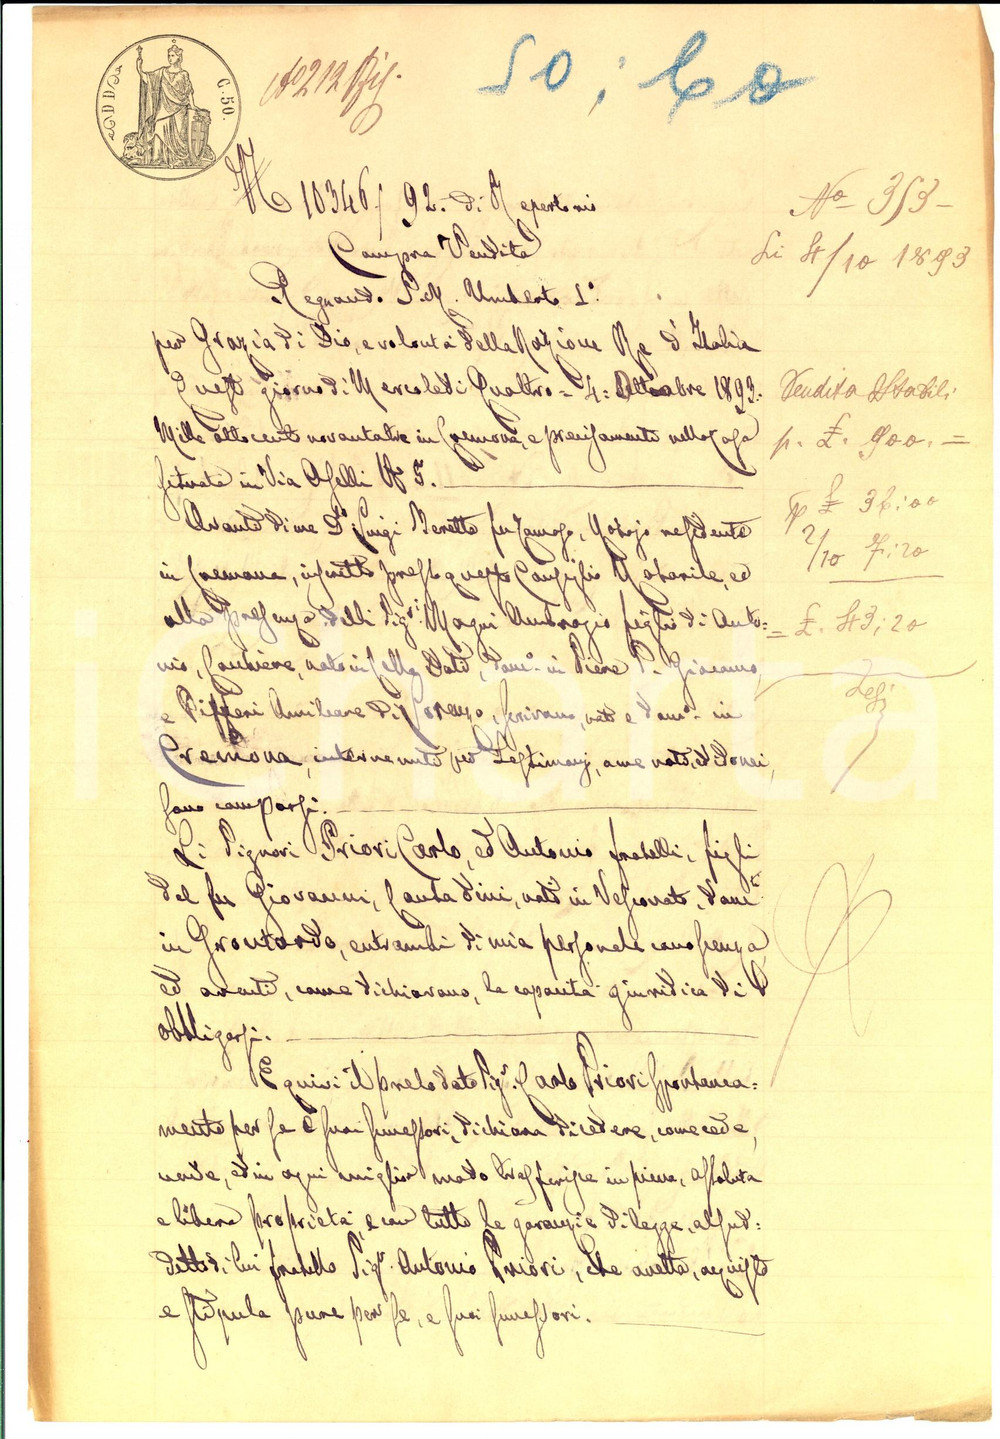 C. 50.
50 : 60
N 10346 / 92 - di Repertorio
Compra Vendita
Regnando S. M. Umberto 1°.
per Grazia di Dio, e volontà della Nazione Re d'Italia
Quest giorno di Mercoledì Quattro = 4: Ottobre 1893.
Mille ottocento novantatre in Cremona, e precisamente nella casa
situata in Via Aselli N° 5.
Avanti di me Dr Luigi fu Notajo residente
in Cremona, inscritto presso questo Consiglio Notarile, ed
alla presenza delli Sigri: Magni Ambrogio figlio di Anto=
nio, nato in Cella Dati, domo. in Pieve S. Giacomo,
e Pifferi Emiliano di Lorenzo, scrivano, nato e domo. in
Cremona, intervenuti per Testimonj, a me noti, ed idonei,
sono comparsi.
Li Signori Priori Carlo, ed Antonio fratelli, figli
del fu Giovanni, Contadini, nati in Vescovato, domi
in Grontardo, entrambi di mia personale conoscenza,
ed aventi, come dichiarano, la capacità giuridica di
obbligarsi.
E quivi il prelodato Sigr. Carlo Priori spontanea=
mente per se e suoi successori, dichiara di cedere, come cede,
vende, ed in ogni miglior modo trasferisce in piena, assoluta
e libera proprietà, e con tutte le garanzie di legge, al sud=
detto di lui fratello Sigr. Antonio Priori, che accetta, acquista
e stipula pure per se, e suoi successori.
No 353 -
Li 4/10 1893
Vendita Stabili
p. £. 900. =
p £ 36:00
2/10 7:20
= £. 43:20